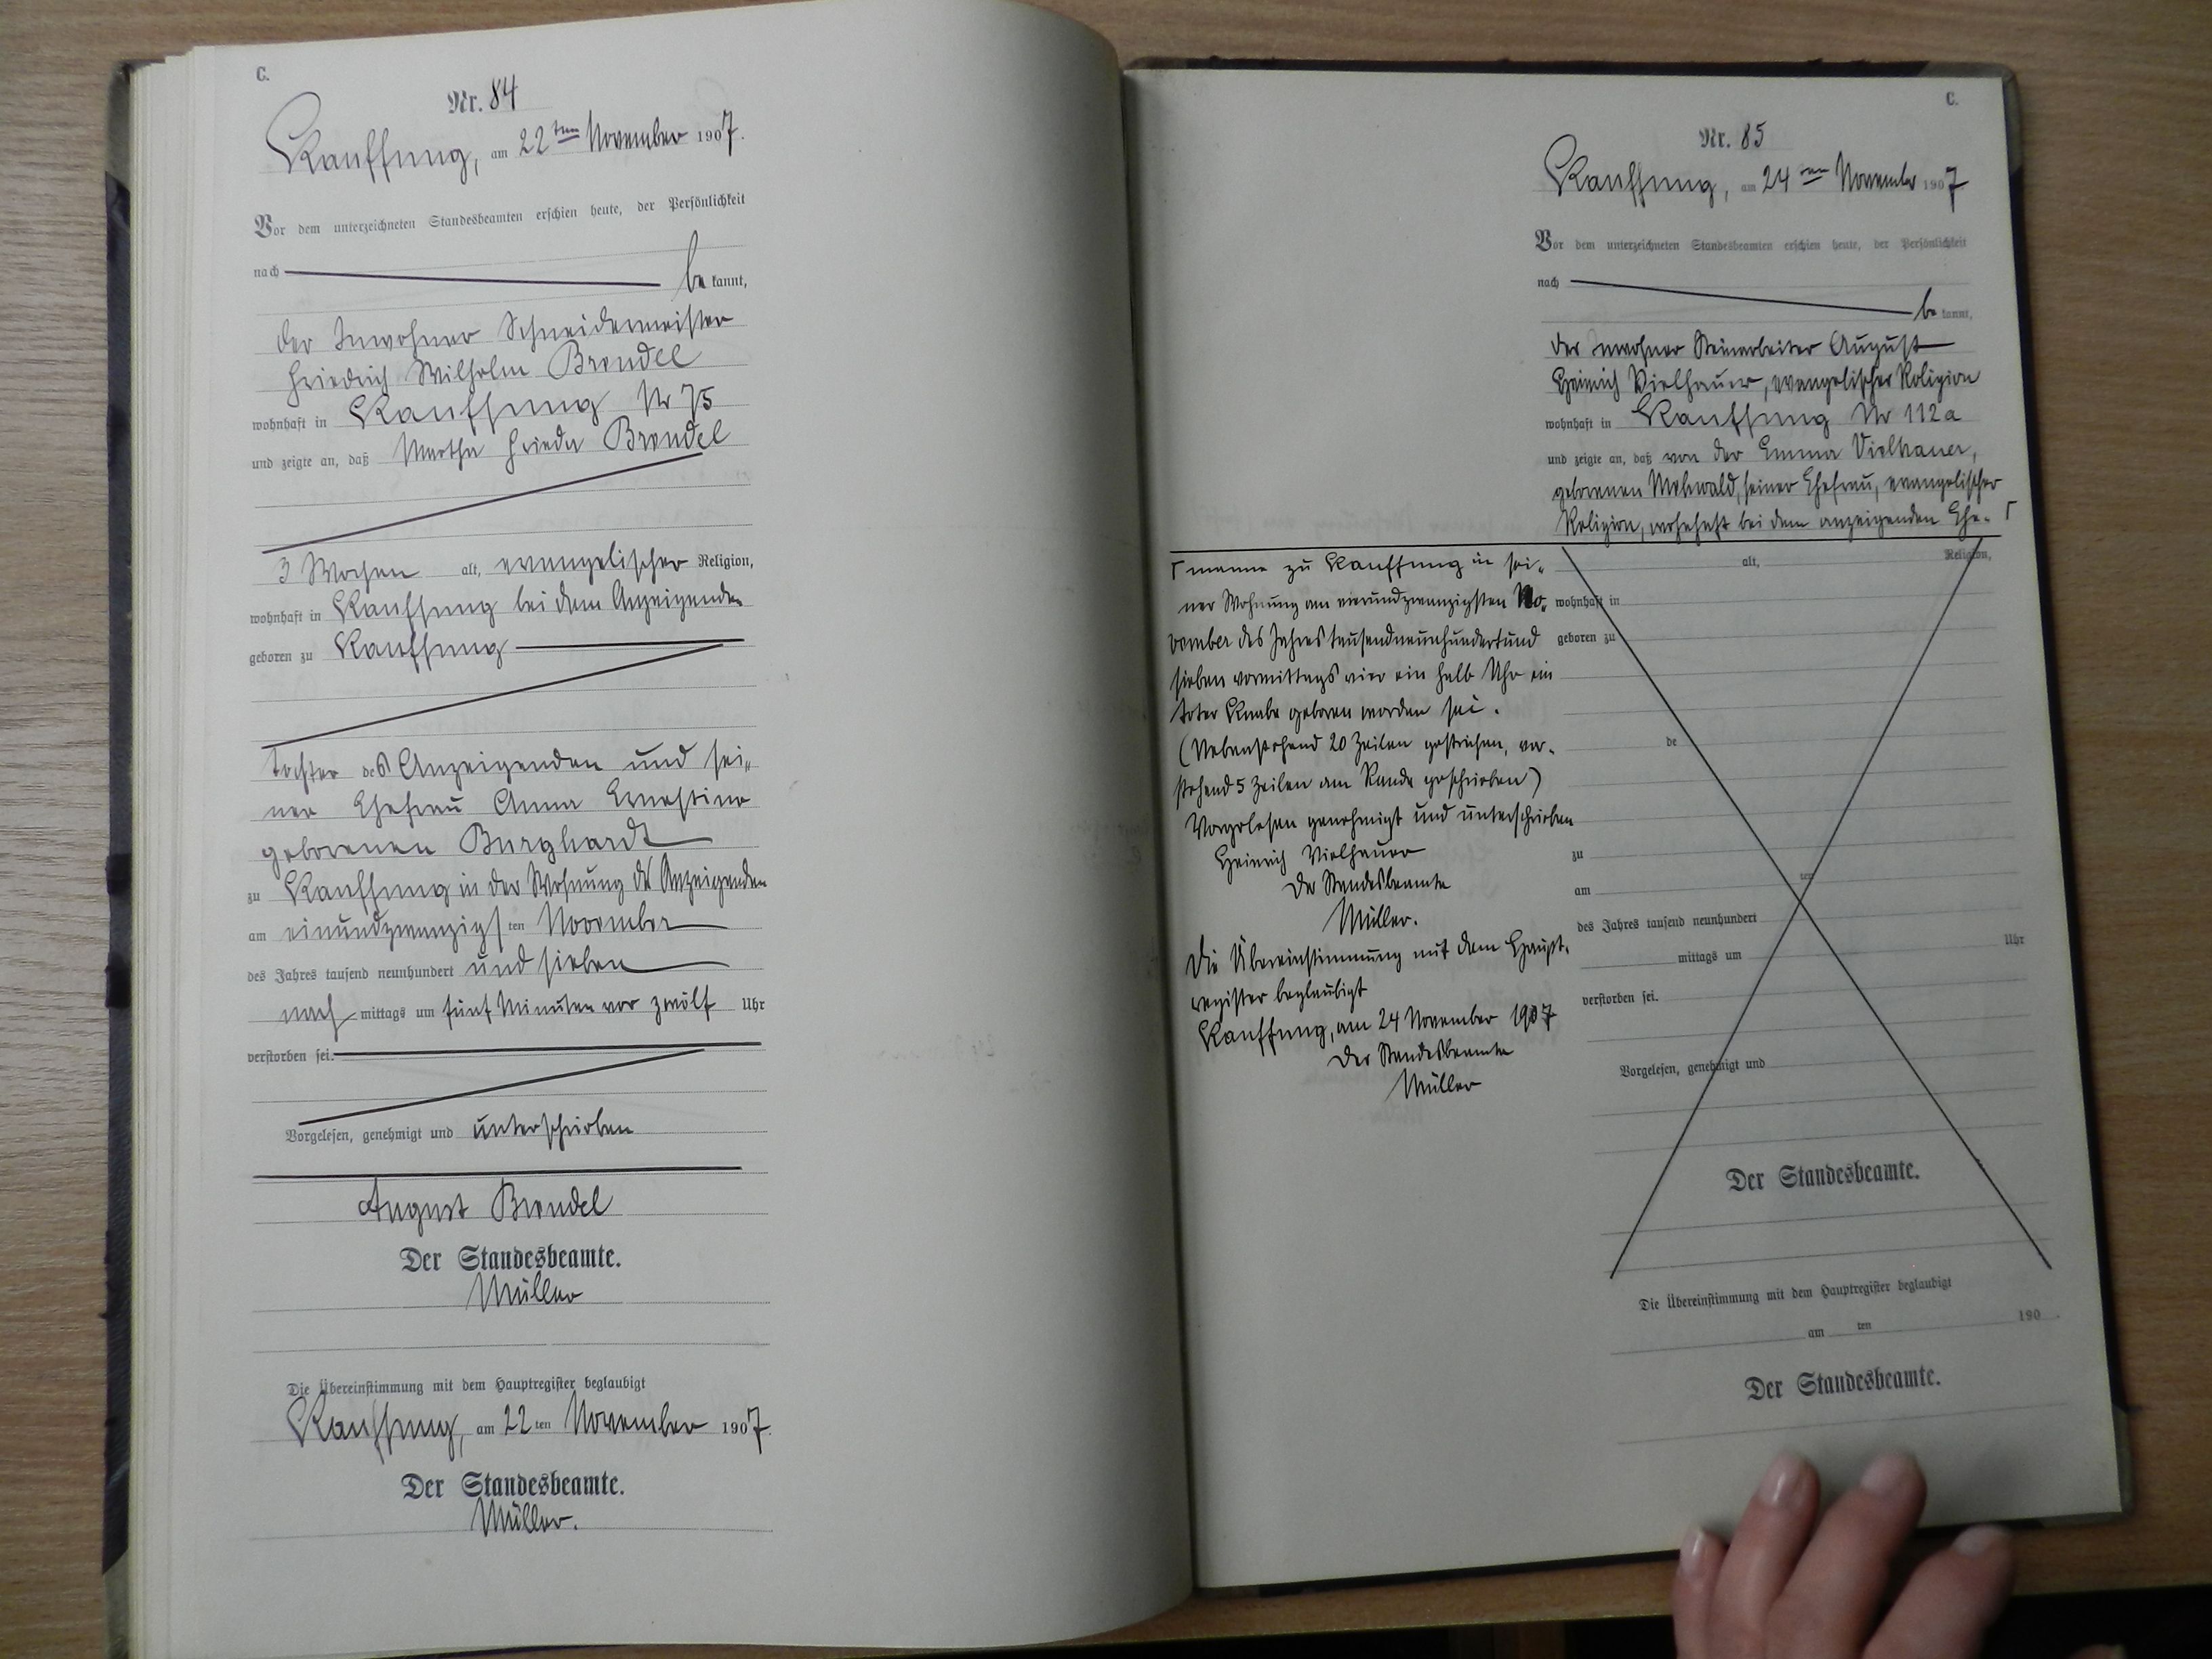 C.
Nr. 84
Kauffung, am 22ten November 1907.
Vor dem unterzeichneten Standesbeamten erschien heute, der Persönlichkeit
nach be kannt,
der Inwohner Schneidermeister
Friedrich Wilhelm Brendel
wohnhaft in Kauffung Nr 75
und zeigte an, daß Martha Frieda Brendel
3 Wochen alt, evangelischer Religion,
wohnhaft in Kauffung bei dem Anzeigenden
geboren zu Kauffung
Tochter des Anzeigenden und sei-
ner Ehefrau Anna Ernestine
geborenen Burghardt
zu Kauffung in der Wohnung des Anzeigenden
am einundzwanzigsten November
des Jahres tausend neunhundert und sieben
nach mittags um fünf Minuten vor zwölf Uhr
verstorben sei.
Vorgelesen, genehmigt und unterschrieben
August Brendel
Der Standesbeamte.
Müller
Die Übereinstimmung mit dem Hauptregister beglaubigt
Kauffung, am 22ten November 1907.
Der Standesbeamte.
Müller.
C.
Nr. 85
Kauffung, am 24ten November 1907
Vor dem unterzeichneten Standesbeamten erschien heute, der Persönlichkeit
nach be kannt,
der Inwohner Steinarbeiter August
Heinrich Vielhauer, evangelischer Religion
wohnhaft in Kauffung Nr 112a
und zeigte an, daß von der Emma Vielhauer,
geborenen Mehwald, seiner Ehefrau, evangelischer
Religion, wohnhaft bei dem anzeigenden Ehe- Γ
Γ manne zu Kauffung in sei-
ner Wohnung am vierundzwanzigsten No-
vember des Jahres tausendneunhundertund
sieben vormittags vier ein halb Uhr ein
toter Knabe geboren worden sei.
(Nebenstehend 20 Zeilen gestrichen, vor-
stehend 5 Zeilen am Rande geschrieben)
Vorgelesen genehmigt und unterschrieben
Heinrich Vielhauer
Der Standesbeamte
Müller.
Die Übereinstimmung mit dem Haupt-
register beglaubigt
Kauffung, am 24 November 1907
Der Standesbeamte
Müller
alt, Religion,
wohnhaft in
geboren zu
de
zu
am ten
des Jahres tausend neunhundert
mittags um Uhr
verstorben sei.
Vorgelesen, genehmigt und
Der Standesbeamte.
Die Übereinstimmung mit dem Hauptregister beglaubigt
am ten 190 .
Der Standesbeamte.